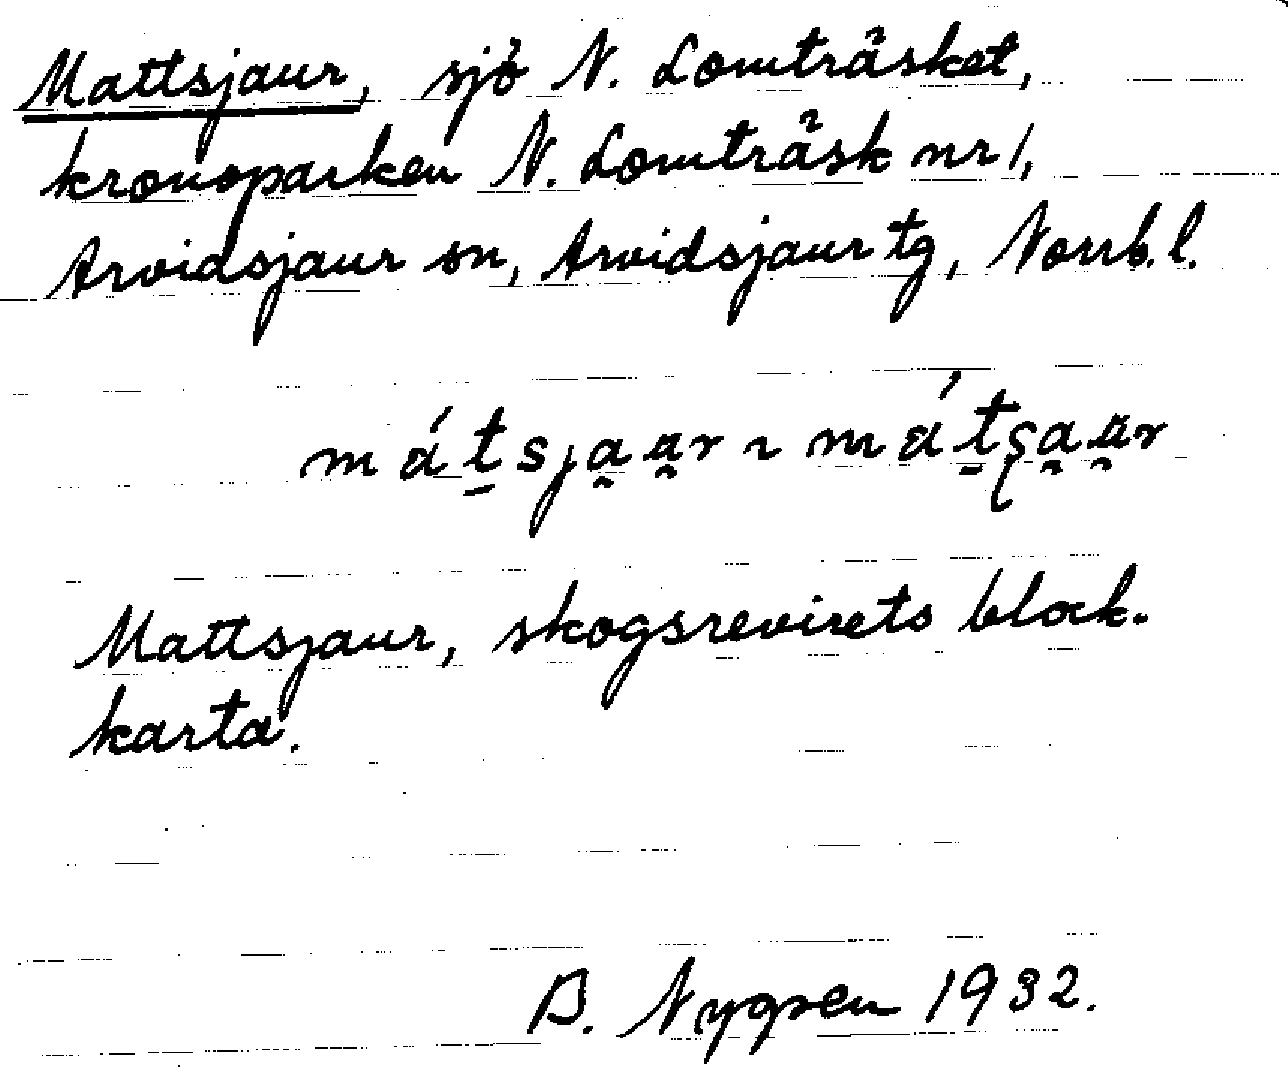 Mattsjaur, sjö N. Lomträsket,
kronoparken N. Lomträsk nr 1,
Arvidsjaur sn, Arvidsjaur tg, Norrb. l.
mát̠sja̯a̯r ~ mát̠ʂa̯a̯r
Mattsjaur, skogsrevirets block.
karta.
B. Nygren 1932.